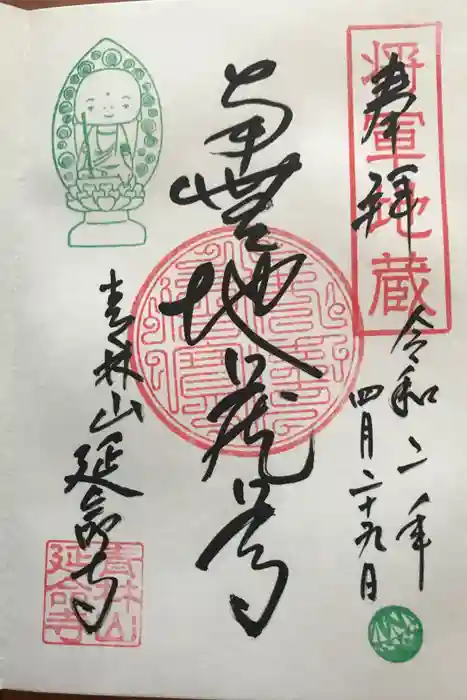 奉拝
将軍地蔵
令和二年
四月二十九日
南無地蔵尊
青林山
延命寺
青林山
延命寺